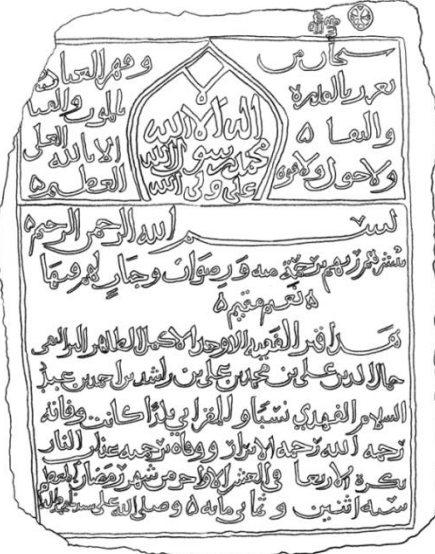 سبحان من
تعزز بالقدرة
والبقا
ولا حول ولا قوة
وقهر العباد
بالموت والفنا
الا بالله العلي
العظيم
لا اله الا الله
محمد رسول الله
علي ولي الله
بسم الله الرحمن الرحيم
يبشرهم ربهم برحمة منه ورضوان وجنات لهم فيها
نعيم مقيم
هذا قبر الفقيه الاوحد الاكمل الطاهر
جمال الدين علي بن محمد بن علي بن راشد بن احمد بن عبد
السلام الفهري نسبا و بلدا كانت وفاته
رحمه الله رحمة الابرار ووقاه برحمته عذاب النار
بكرة الاربعا في العشر الاواخر من شهر رمضان المعظم
سنة اثنين وثماني مائه وصلى الله على سيدنا